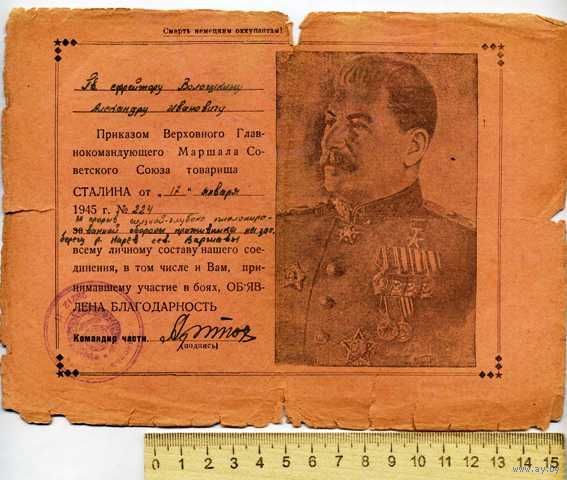 Смерть немецким оккупантам!
Гв ефрейтору Волошкину
Александру Ивановичу
Приказом Верховного Глав-
нокомандующего Маршала Со-
ветского Союза товарища
СТАЛИНА от „17" января
1945 г. № 224
за прорыв сильной глубоко эшелониро-
ванной обороны противника на зап.
берегу р. Нарев сев. Варшавы
всему личному составу нашего сое-
динения, в том числе и Вам, при-
нимавшему участие в боях, ОБ'ЯВ-
ЛЕНА БЛАГОДАРНОСТЬ
Командир части.
(подпись)
0 1 2 3 4 5 6 7 8 9 10 11 12 13 14 15
www.ay.by